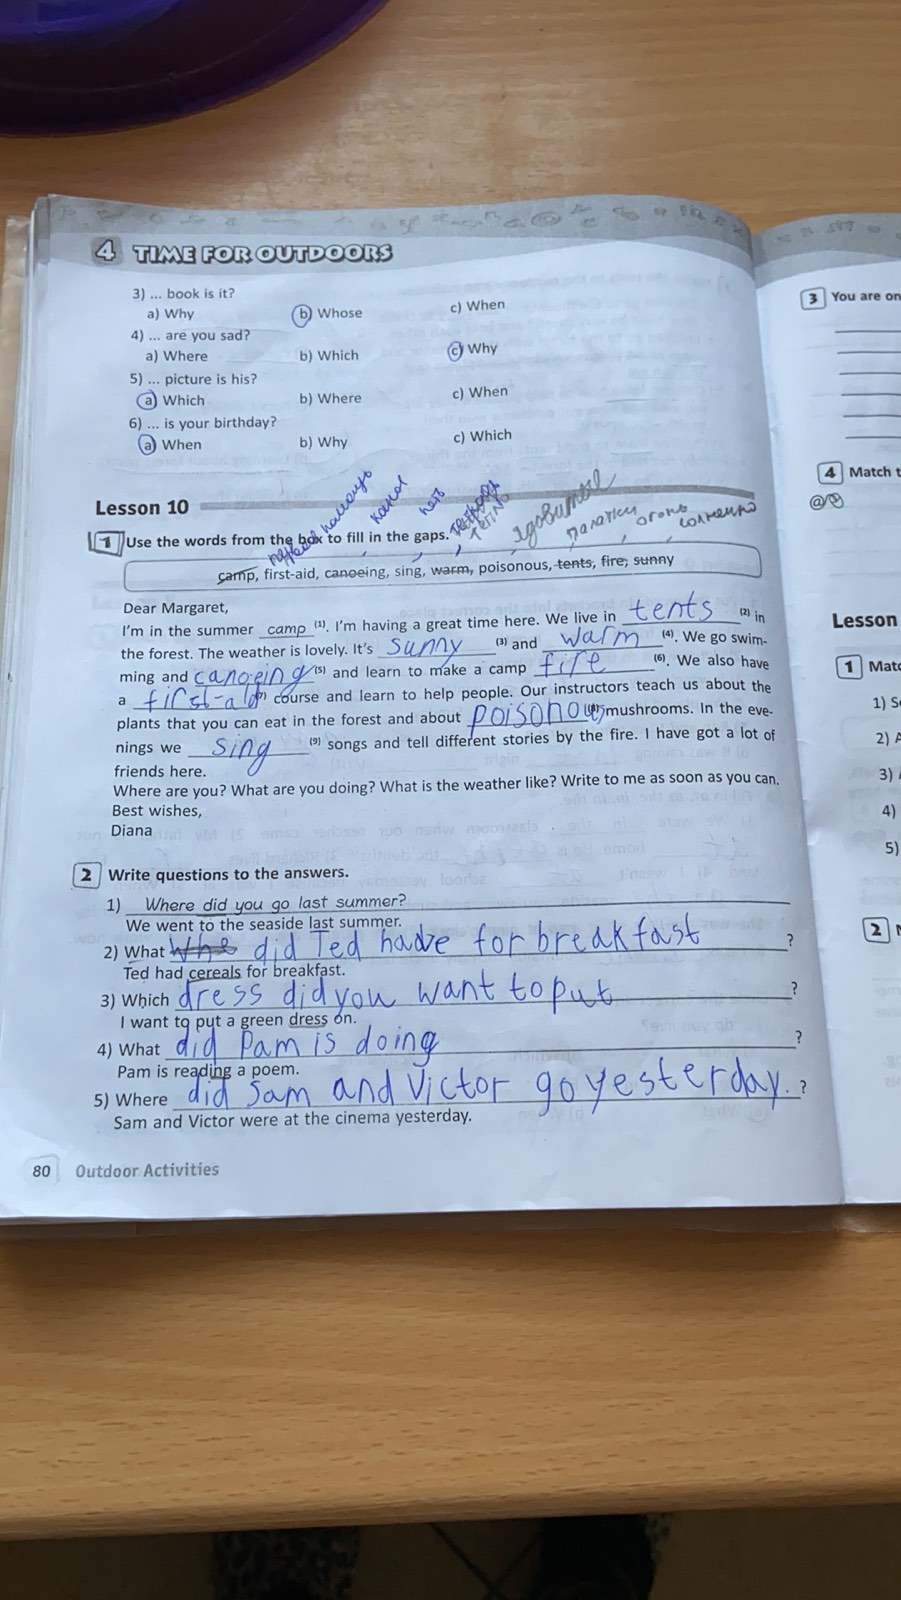 4 TIME FOR OUTDOORS
3) ... book is it?
a) Why b) Whose c) When
4) ... are you sad?
a) Where b) Which c) Why
5) ... picture is his?
a) Which b) Where c) When
6) ... is your birthday?
a) When b) Why c) Which
Lesson 10
каноэ петь ядовитые палатки огонь солнечно
1 Use the words from the box to fill in the gaps.
camp, first-aid, canoeing, sing, warm, poisonous, tents, fire, sunny
Dear Margaret,
I'm in the summer camp (1). I'm having a great time here. We live in tents (2) in
the forest. The weather is lovely. It's sunny (3) and warm (4). We go swim-
ming and canoeing (5) and learn to make a camp fire (6). We also have
a first-aid course and learn to help people. Our instructors teach us about the
plants that you can eat in the forest and about poisonous mushrooms. In the eve-
nings we sing (9) songs and tell different stories by the fire. I have got a lot of
friends here.
Where are you? What are you doing? What is the weather like? Write to me as soon as you can.
Best wishes,
Diana
2 Write questions to the answers.
1) Where did you go last summer?
We went to the seaside last summer.
2) What did Ted have for breakfast ?
Ted had cereals for breakfast.
3) Which dress did you want to put ?
I want to put a green dress on.
4) What did Pam is doing ?
Pam is reading a poem.
5) Where did Sam and Victor go yesterday. ?
Sam and Victor were at the cinema yesterday.
80 Outdoor Activities
3 You are on
4 Match t
Lesson
1 Matc
1) S
2) A
3)
4)
5)
2